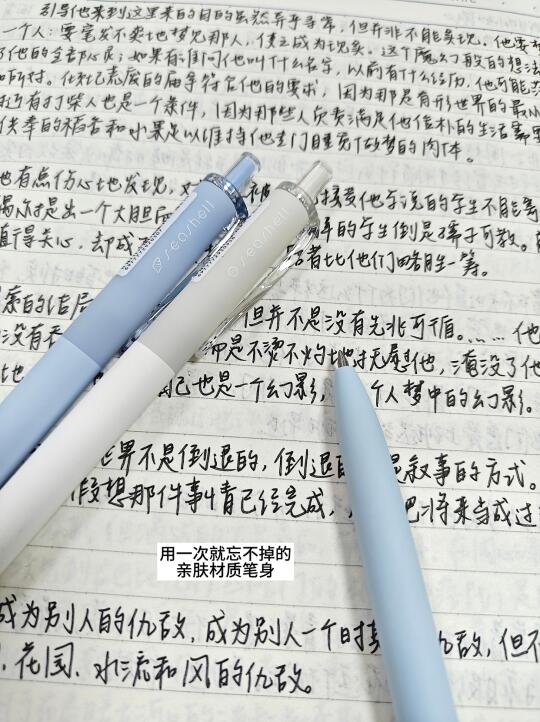 引导他来到这里来的目的虽然异乎寻常，但并非不能实现。他要梦
一个人：要毫发不爽地梦见那人，使之成为现实。这个魔幻般的想法
了他的全部心灵；如果有谁问他叫什么名字，以前有什么经历，他可能
符合他的要求，因为那是有形世界的最
有打柴人也是一个条件，因为那些人负责满足他俭朴的生活需要
供奉的稻谷和水果足以维持他专门睡觉做梦的肉体。
他有点伤心地发现，
接受他学说的学生不能寄
偶尔提出一个大胆
的学生倒是孺子可教。
值得关心，却成
后者比他们略胜一筹。
seashell
seashell
但并不是没有先兆可循。……他
没有
而是不烫不灼地抚慰他，淹没了他
自己也是一个幻影，
个人梦中的幻影。
世界不是倒退的，倒退
是叙事的方式。
假想那件事情已经完成，
把将来当成过
用一次就忘不掉的
亲肤材质笔身
成为别人的仇敌，成为别人一个时
仇敌，但不
花园、水流和风的仇敌。